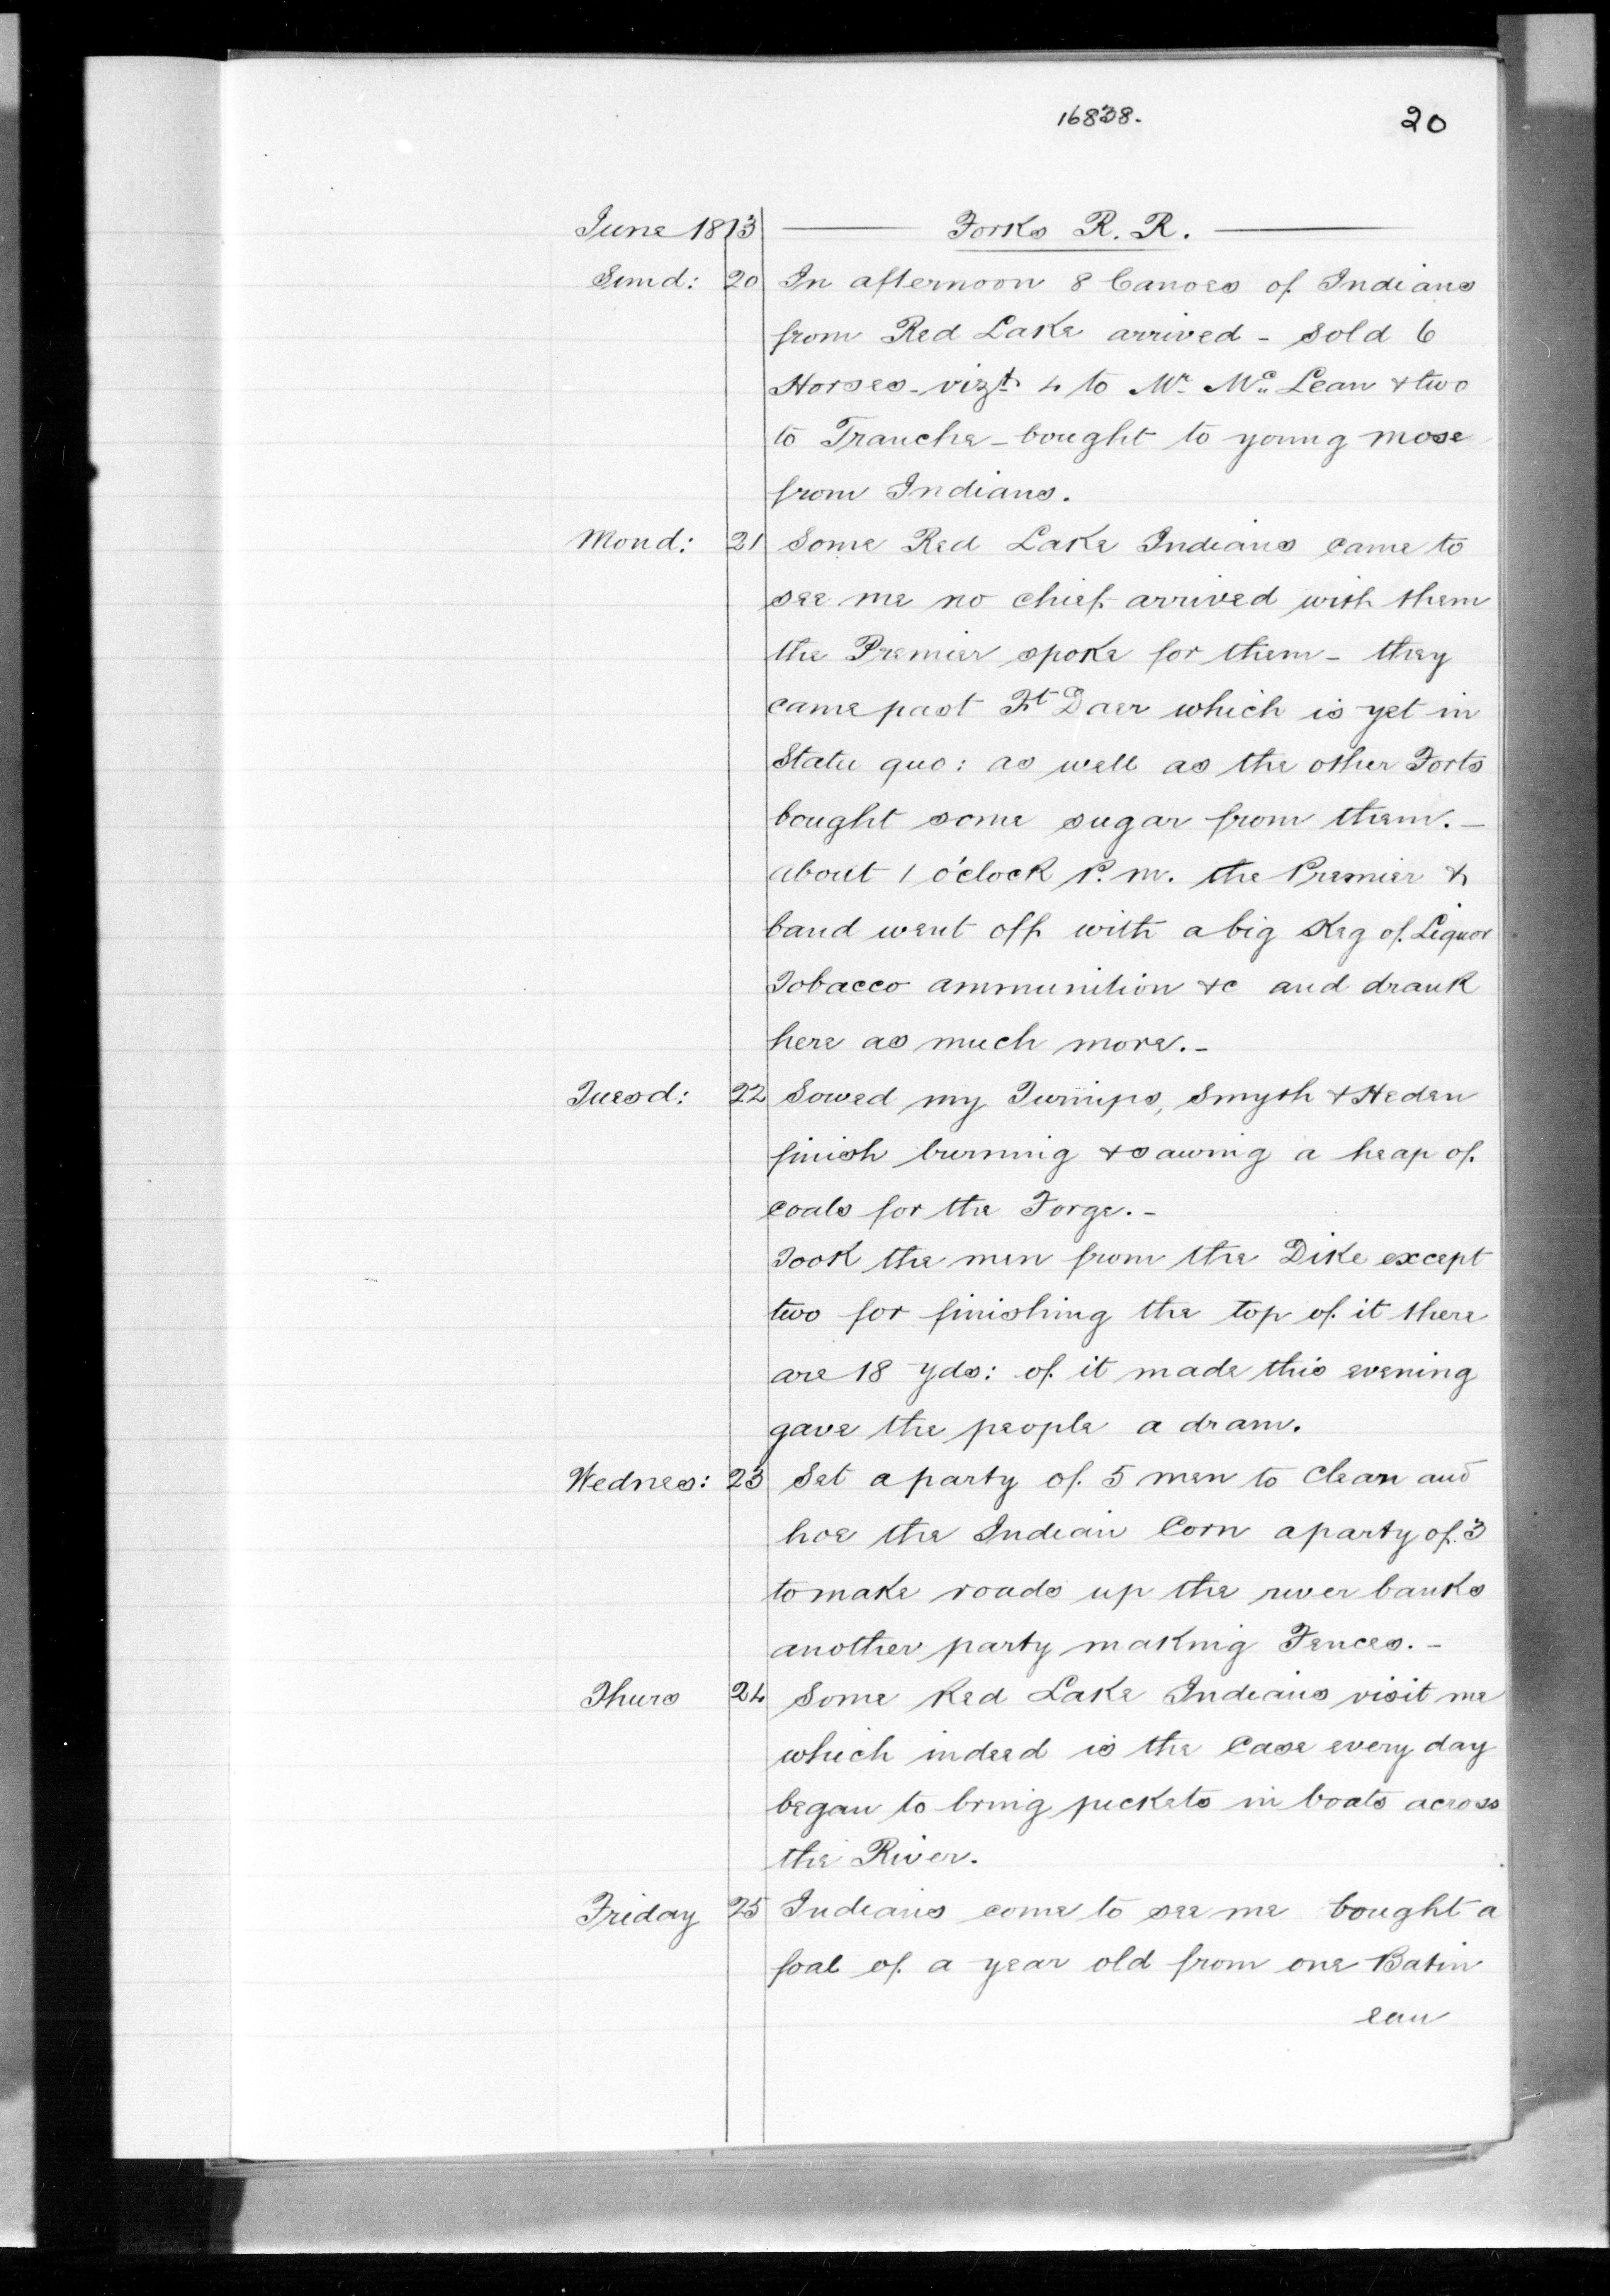 16838. 20
June 1813 Forks R. R.
Sund: 20 In afternoon 8 Canoes of Indians
from Red Lake arrived - sold 6
Horses - vizt 4 to Mr. Mc. Lean & two
to Tranche - bought to young mose
from Indians.
Mond: 21 Some Red Lake Indians came to
see me no chief arrived with them
the Premier spoke for them - they
came past Ft Daer which is yet in
Statu quo: as well as the other Forts
bought some sugar from them. -
about 1 o'clock P.m. the Premier &
band went off with a big Keg of Liquor
Tobacco ammunition &c and drank
here as much more. -
Tuesd: 22 Sowed my Turnips, Smyth & Heden
finish burning & sawing a heap of
coals for the Forge. -
Took the men from the Dike except
two for finishing the top of it there
are 18 yds: of it made this evening
gave the people a dram.
Wednes: 23 Set a party of 5 men to Clean and
hoe the Indian Corn a party of 3
to make roads up the river banks
another party making Fences. -
Thurs 24 Some Red Lake Indians visit me
which indeed is the Case every day
began to bring pickets in boats across
the River.
Friday 25 Indians come to see me bought a
foal of a year old from one Batin
eau